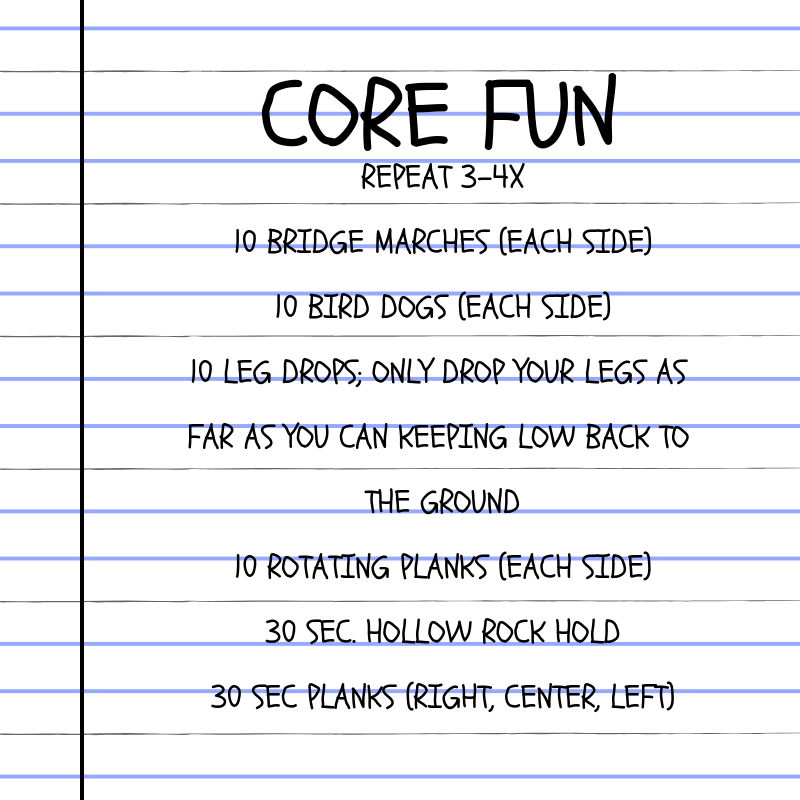 CORE FUN
REPEAT 3-4X
10 BRIDGE MARCHES (EACH SIDE)
10 BIRD DOGS (EACH SIDE)
10 LEG DROPS; ONLY DROP YOUR LEGS AS
FAR AS YOU CAN KEEPING LOW BACK TO
THE GROUND
10 ROTATING PLANKS (EACH SIDE)
30 SEC. HOLLOW ROCK HOLD
30 SEC PLANKS (RIGHT, CENTER, LEFT)